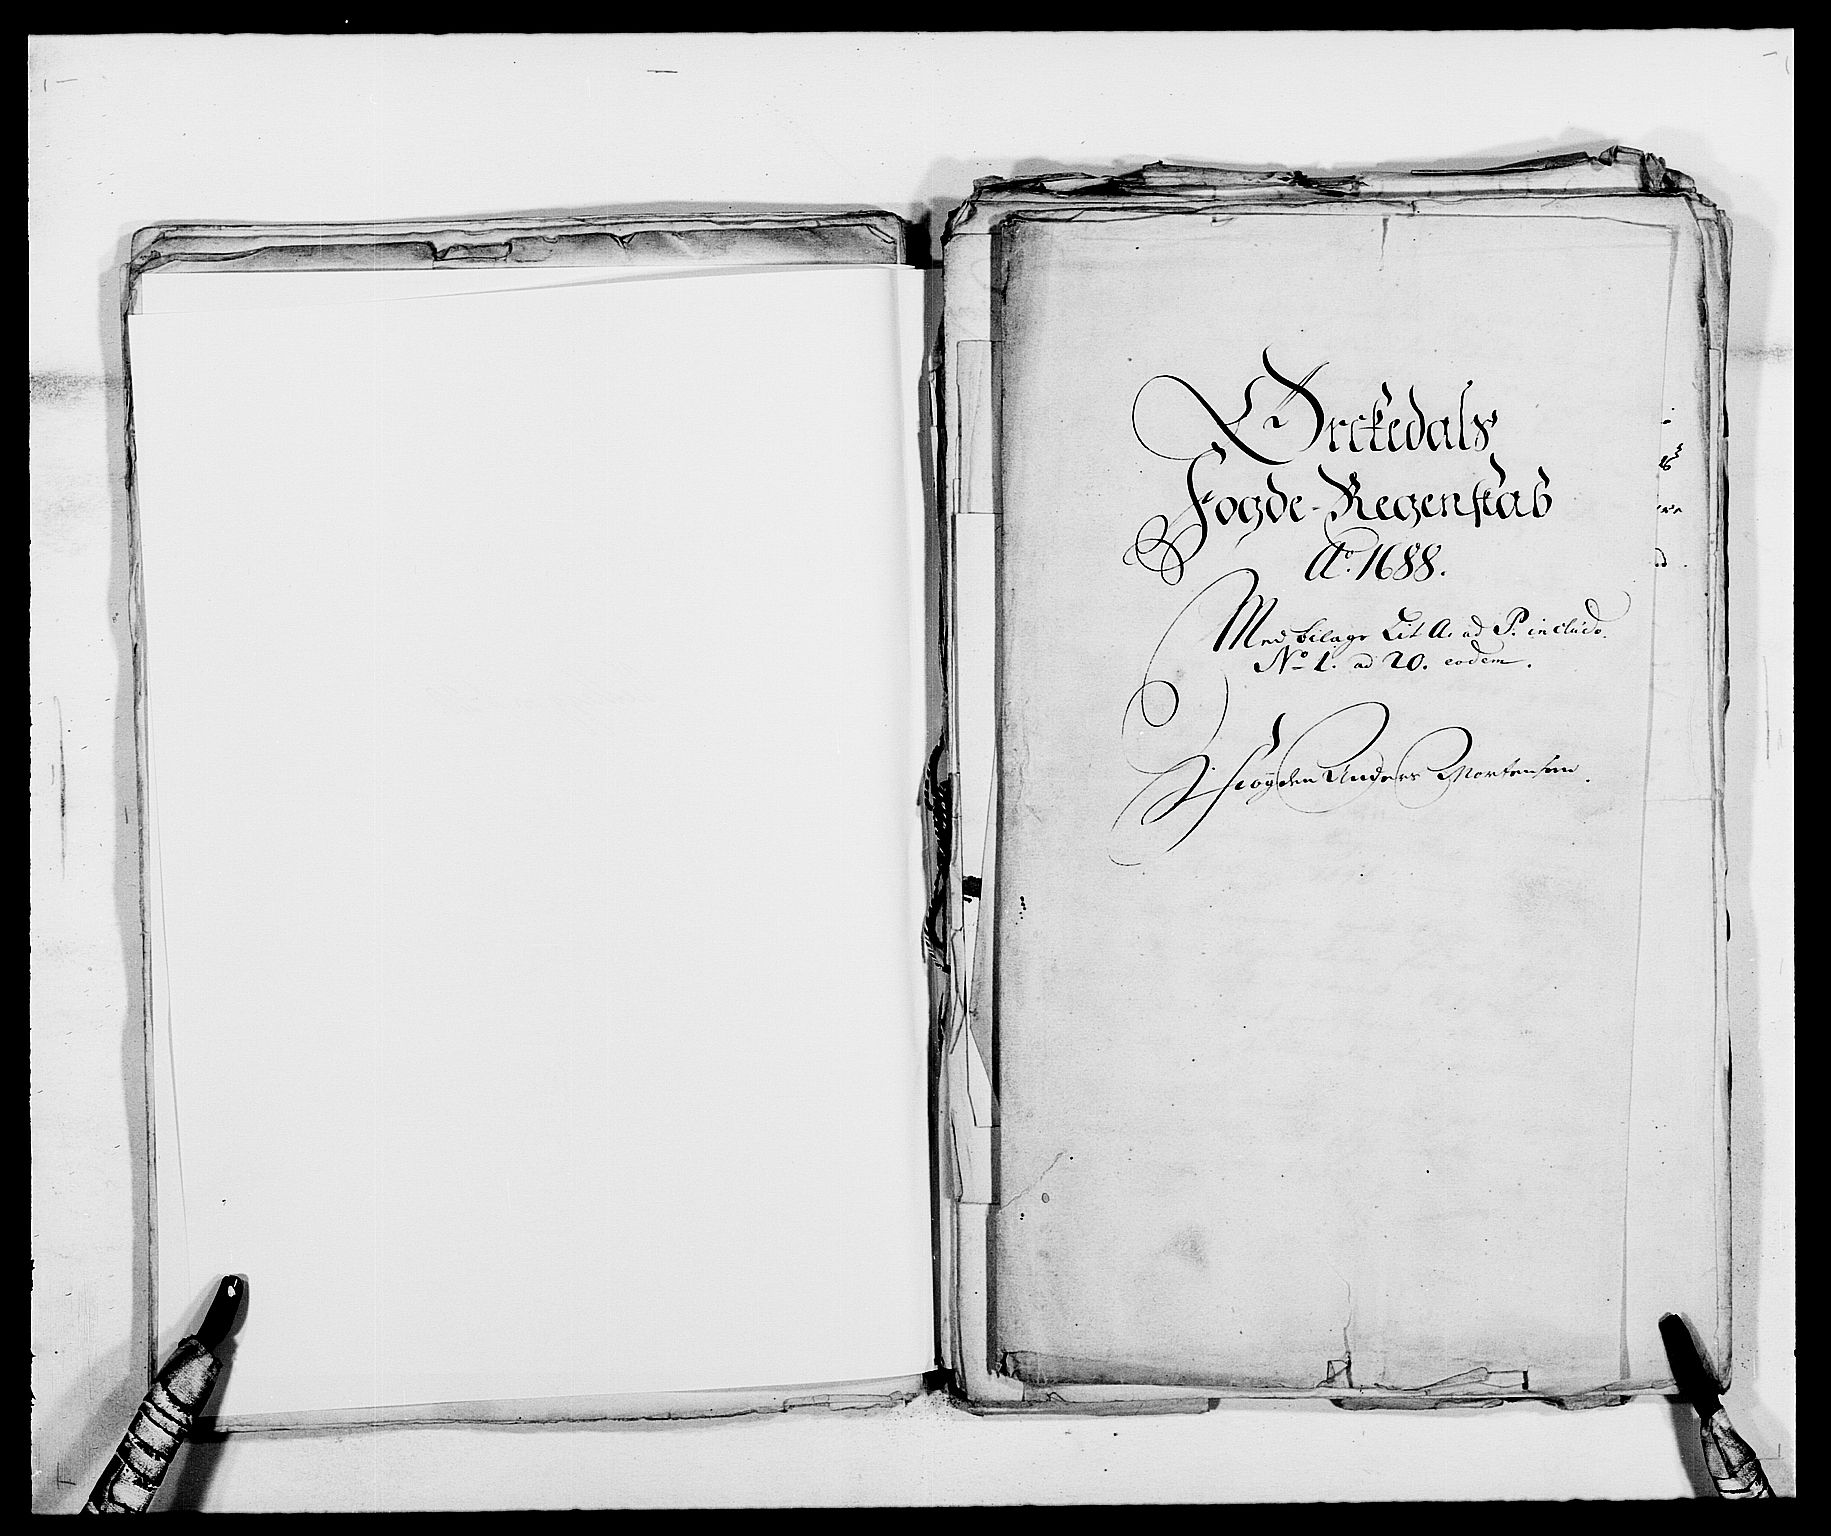 Orckedals
Fogde-Regenskab
Ao. 1688.
Med bilage Lit A. ad P. includs.
No 1. ad 20. eodem.
Fogden Anders Mortensen.